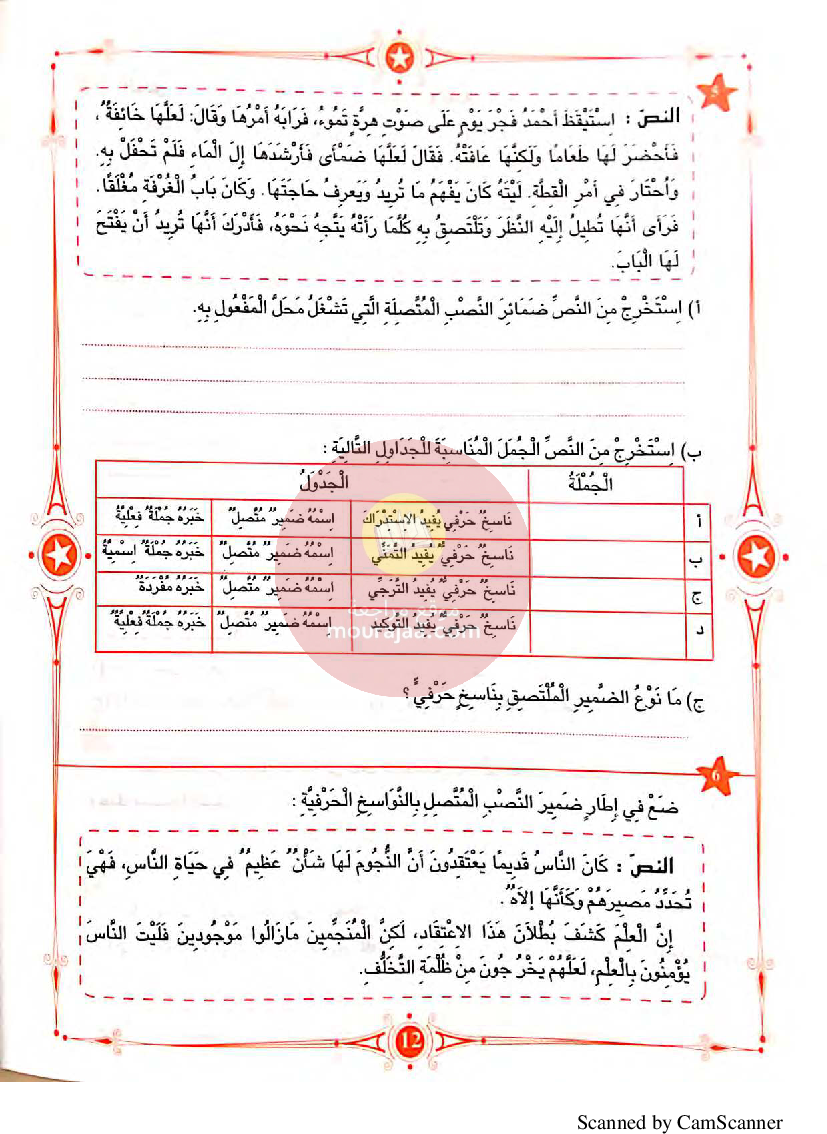 5
النص : اِسْتَيْقَظَ أَحْمَدُ فَجْرَ يَوْمٍ عَلَى صَوْتِ هِرَّةٍ تَمُوءُ، فَرَابَهُ أَمْرُهَا وَقَالَ: لَعَلَّهَا خَائِفَةٌ،
فَأَحْضَرَ لَهَا طَعَامًا وَلَكِنَّهَا عَافَتْهُ. فَقَالَ لَعَلَّهَا ضَمْأَى فَأَرْشَدَهَا إِلَ الْمَاءِ فَلَمْ تَحْفَلْ بِهِ.
وَاُحْتَارَ فِي أَمْرِ الْقِطَّةِ. لَيْتَهُ كَانَ يَفْهَمُ مَا تُرِيدُ وَيَعرِفُ حَاجَتَهَا. وَكَانَ بَابُ الْغُرْفَةِ مُغْلَقًا.
فَرَأَى أَنَّهَا تُطِيلُ إِلَيْهِ النَّظَرَ وَتَلْتَصِقُ بِهِ كُلَّمَا رَأَتْهُ يَتَّجِهُ نَحْوَهُ، فَأَدْرَكَ أَنَّهَا تُرِيدُ أَنْ يَفْتَحَ
لَهَا الْبَابَ.
أ) اِسْتَخْرِجْ مِنَ النَّصِّ ضَمَائِرَ النَّصْبِ الْمُتَّصِلَةِ الَّتِي تَشْغَلُ مَحَلَّ الْمَفْعُولِ بِهِ.
ب) اِسْتَخْرِجْ مِنَ النَّصِّ الْجُمَلَ الْمُنَاسِبَةَ لِلْجَدَاوِلِ التَّالِيَةِ :
الْجُمْلَةُ الْجَدْوَلُ
أ نَاسِخٌ حَرْفِي يُفِيدُ الاِسْتِدْرَاكَ اِسْمُهُ ضَمِيرٌ مُتَّصِلٌ خَبَرُهُ جُمْلَةٌ فِعْلِيَّةٌ
ب نَاسِخٌ حَرْفِيٌّ يُفِيدُ التَّمَنِّي اِسْمُهُ ضَمِيرٌ مُتَّصِلٌ خَبَرُهُ جُمْلَةٌ اِسْمِيَّةٌ
ج نَاسِخٌ حَرْفِيٌّ يُفِيدُ التَّرَجِّي اِسْمُهُ ضَمِيرٌ مُتَّصِلٌ خَبَرُهُ مُفْرَدَةٌ
د نَاسِخٌ حَرْفِيٌّ يُفِيدُ التَّوْكِيدَ اِسْمُهُ ضَمِيرٌ مُتَّصِلٌ خَبَرُهُ جُمْلَةٌ فِعْلِيَّةٌ
موقع مراجعة
mourajaa.com
ج) مَا نَوْعُ الضَّمِيرِ الْمُلْتَصِقِ بِنَاسِخٍ حَرْفِيٍّ ؟
6
ضَعْ فِي إِطَارٍ ضَمِيرَ النَّصْبِ الْمُتَّصِلِ بِالنَّوَاسِخِ الْحَرْفِيَّةِ :
النص : كَانَ النَّاسُ قَدِيمًا يَعْتَقِدُونَ أَنَّ النُّجُومَ لَهَا شَأْنٌ عَظِيمٌ فِي حَيَاةِ النَّاسِ، فَهْيَ
تُحَدِّدُ مَصِيرَهُمْ وَكَأَنَّهَا إِلاَهٌ.
إِنَّ الْعِلْمَ كَشَفَ بُطْلاَنَ هَذَا الاِعْتِقَادِ، لَكِنَّ الْمُنَجِّمِينَ مَازَالُوا مَوْجُودِينَ فَلَيْتَ النَّاسَ
يُؤْمِنُونَ بِالْعِلْمِ، لَعَلَّهُمْ يَخْرُجُونَ مِنْ ظُلْمَةِ التَّخَلُّفِ.
12
Scanned by CamScanner